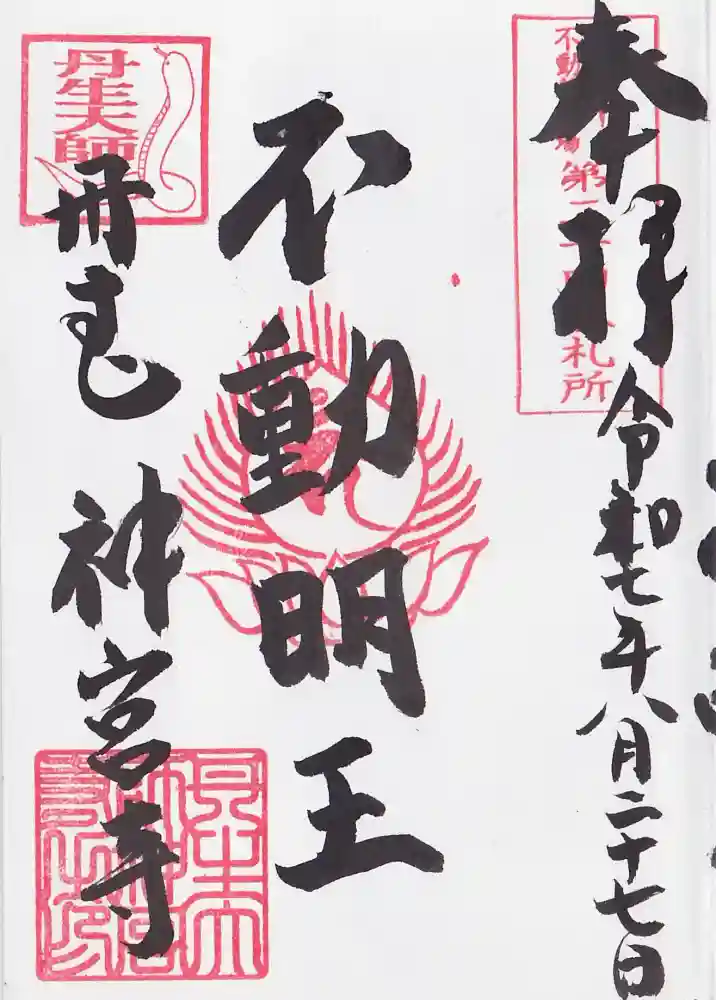 奉拝 令和七年八月二十七日
不動 第 札所
不動明王
丹生大師
丹生山 神宮寺